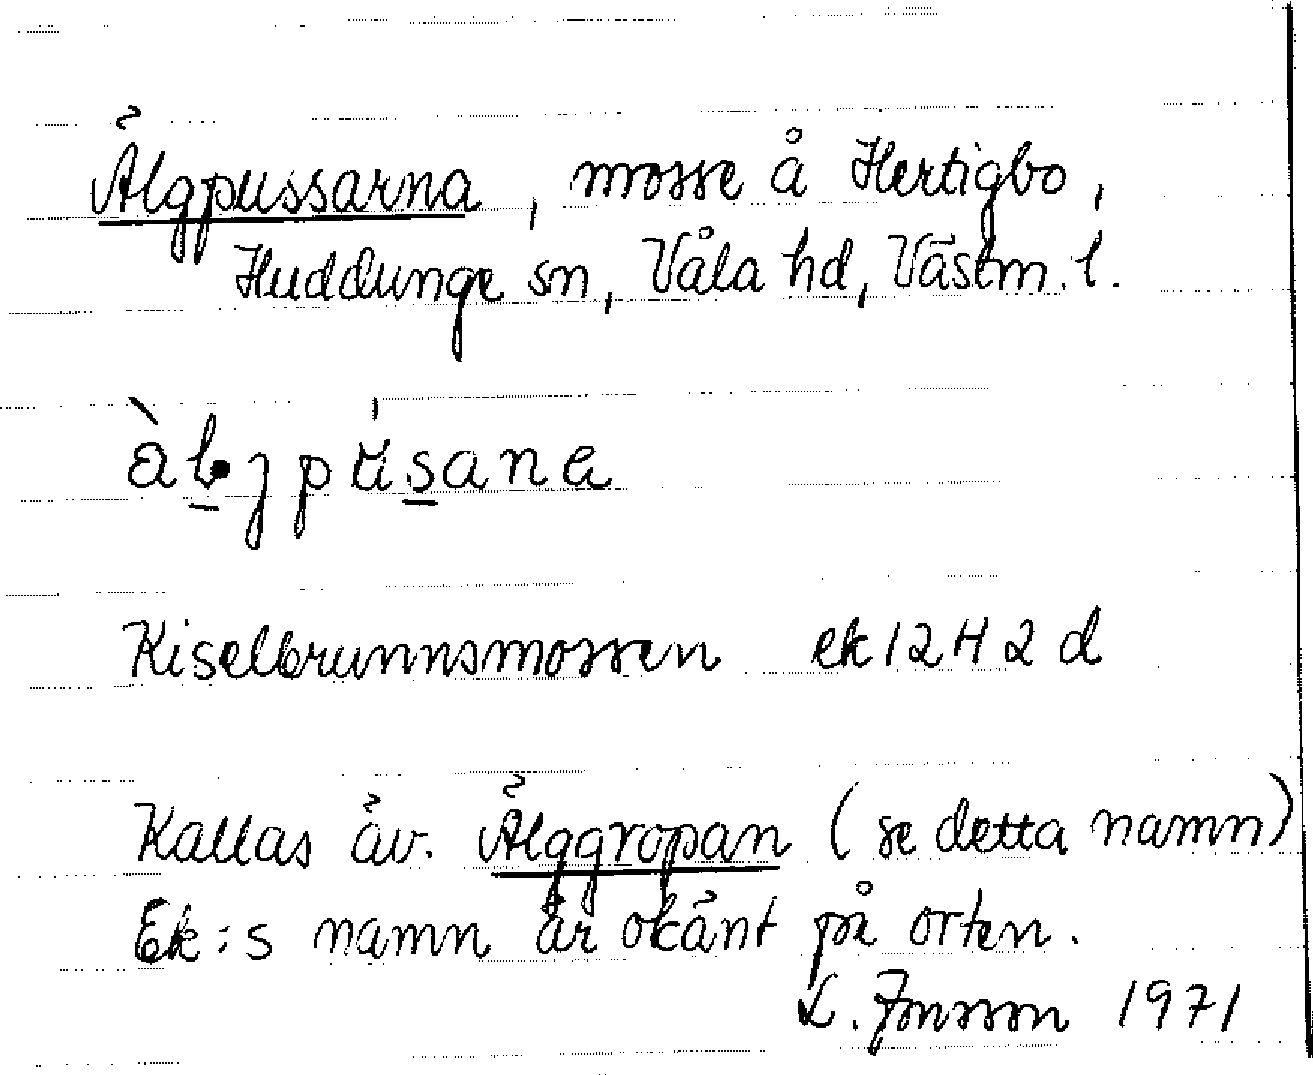 Älgpussarna, mosse å Hertigbo,
Huddunge sn, Våla hd, Västm. l.
Kiselbrunnsmossen ek 12H 2d
Kallas äv. Älggropan (se detta namn)
Ek:s namn är okänt på orten.
L. Jonsson 1971